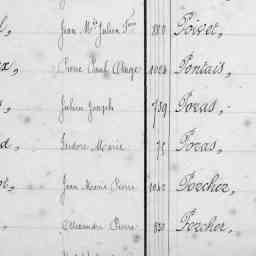 Jean Mie Julien Fois 880 Poivet,
Pierre Paul Ange 1024 Pontais,
Julien Joseph 739 Poras,
Isidore Marie 75 Poras,
Jean Marie Pierre Porcher,
Alexandre Pierre 830 Porcher,